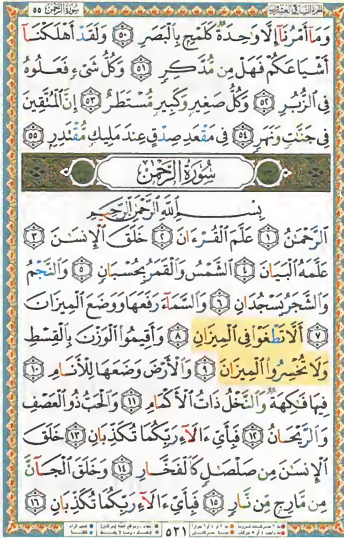 سُورَةُ الرَّحْمٰن ٥٥
وَمَآ أَمْرُنَآ إِلَّا وَٰحِدَةٌ كَلَمْحٍۭ بِٱلْبَصَرِ ٥٠ وَلَقَدْ أَهْلَكْنَآ
أَشْيَاعَكُمْ فَهَلْ مِن مُّدَّكِرٍ ٥١ وَكُلُّ شَىْءٍ فَعَلُوهُ
فِى ٱلزُّبُرِ ٥٢ وَكُلُّ صَغِيرٍ وَكَبِيرٍ مُّسْتَطَرٌ ٥٣ إِنَّ ٱلْمُتَّقِينَ
فِى جَنَّٰتٍ وَنَهَرٍ ٥٤ فِى مَقْعَدِ صِدْقٍ عِندَ مَلِيكٍ مُّقْتَدِرٍۭ ٥٥
سُورَةُ الرَّحْمٰن
بِسْمِ ٱللَّهِ ٱلرَّحْمَٰنِ ٱلرَّحِيمِ
ٱلرَّحْمَٰنُ ١ عَلَّمَ ٱلْقُرْءَانَ ٢ خَلَقَ ٱلْإِنسَٰنَ ٣
عَلَّمَهُ ٱلْبَيَانَ ٤ ٱلشَّمْسُ وَٱلْقَمَرُ بِحُسْبَانٍ ٥ وَٱلنَّجْمُ
وَٱلشَّجَرُ يَسْجُدَانِ ٦ وَٱلسَّمَآءَ رَفَعَهَا وَوَضَعَ ٱلْمِيزَانَ
٧ أَلَّا تَطْغَوْا۟ فِى ٱلْمِيزَانِ ٨ وَأَقِيمُوا۟ ٱلْوَزْنَ بِٱلْقِسْطِ
وَلَا تُخْسِرُوا۟ ٱلْمِيزَانَ ٩ وَٱلْأَرْضَ وَضَعَهَا لِلْأَنَامِ ١٠
فِيهَا فَٰكِهَةٌ وَٱلنَّخْلُ ذَاتُ ٱلْأَكْمَامِ ١١ وَٱلْحَبُّ ذُو ٱلْعَصْفِ
وَٱلرَّيْحَانُ ١٢ فَبِأَىِّ ءَالَآءِ رَبِّكُمَا تُكَذِّبَانِ ١٣ خَلَقَ
ٱلْإِنسَٰنَ مِن صَلْصَٰلٍ كَٱلْفَخَّارِ ١٤ وَخَلَقَ ٱلْجَآنَّ
مِن مَّارِجٍ مِّن نَّارٍ ١٥ فَبِأَىِّ ءَالَآءِ رَبِّكُمَا تُكَذِّبَانِ ١٦
٥٣١